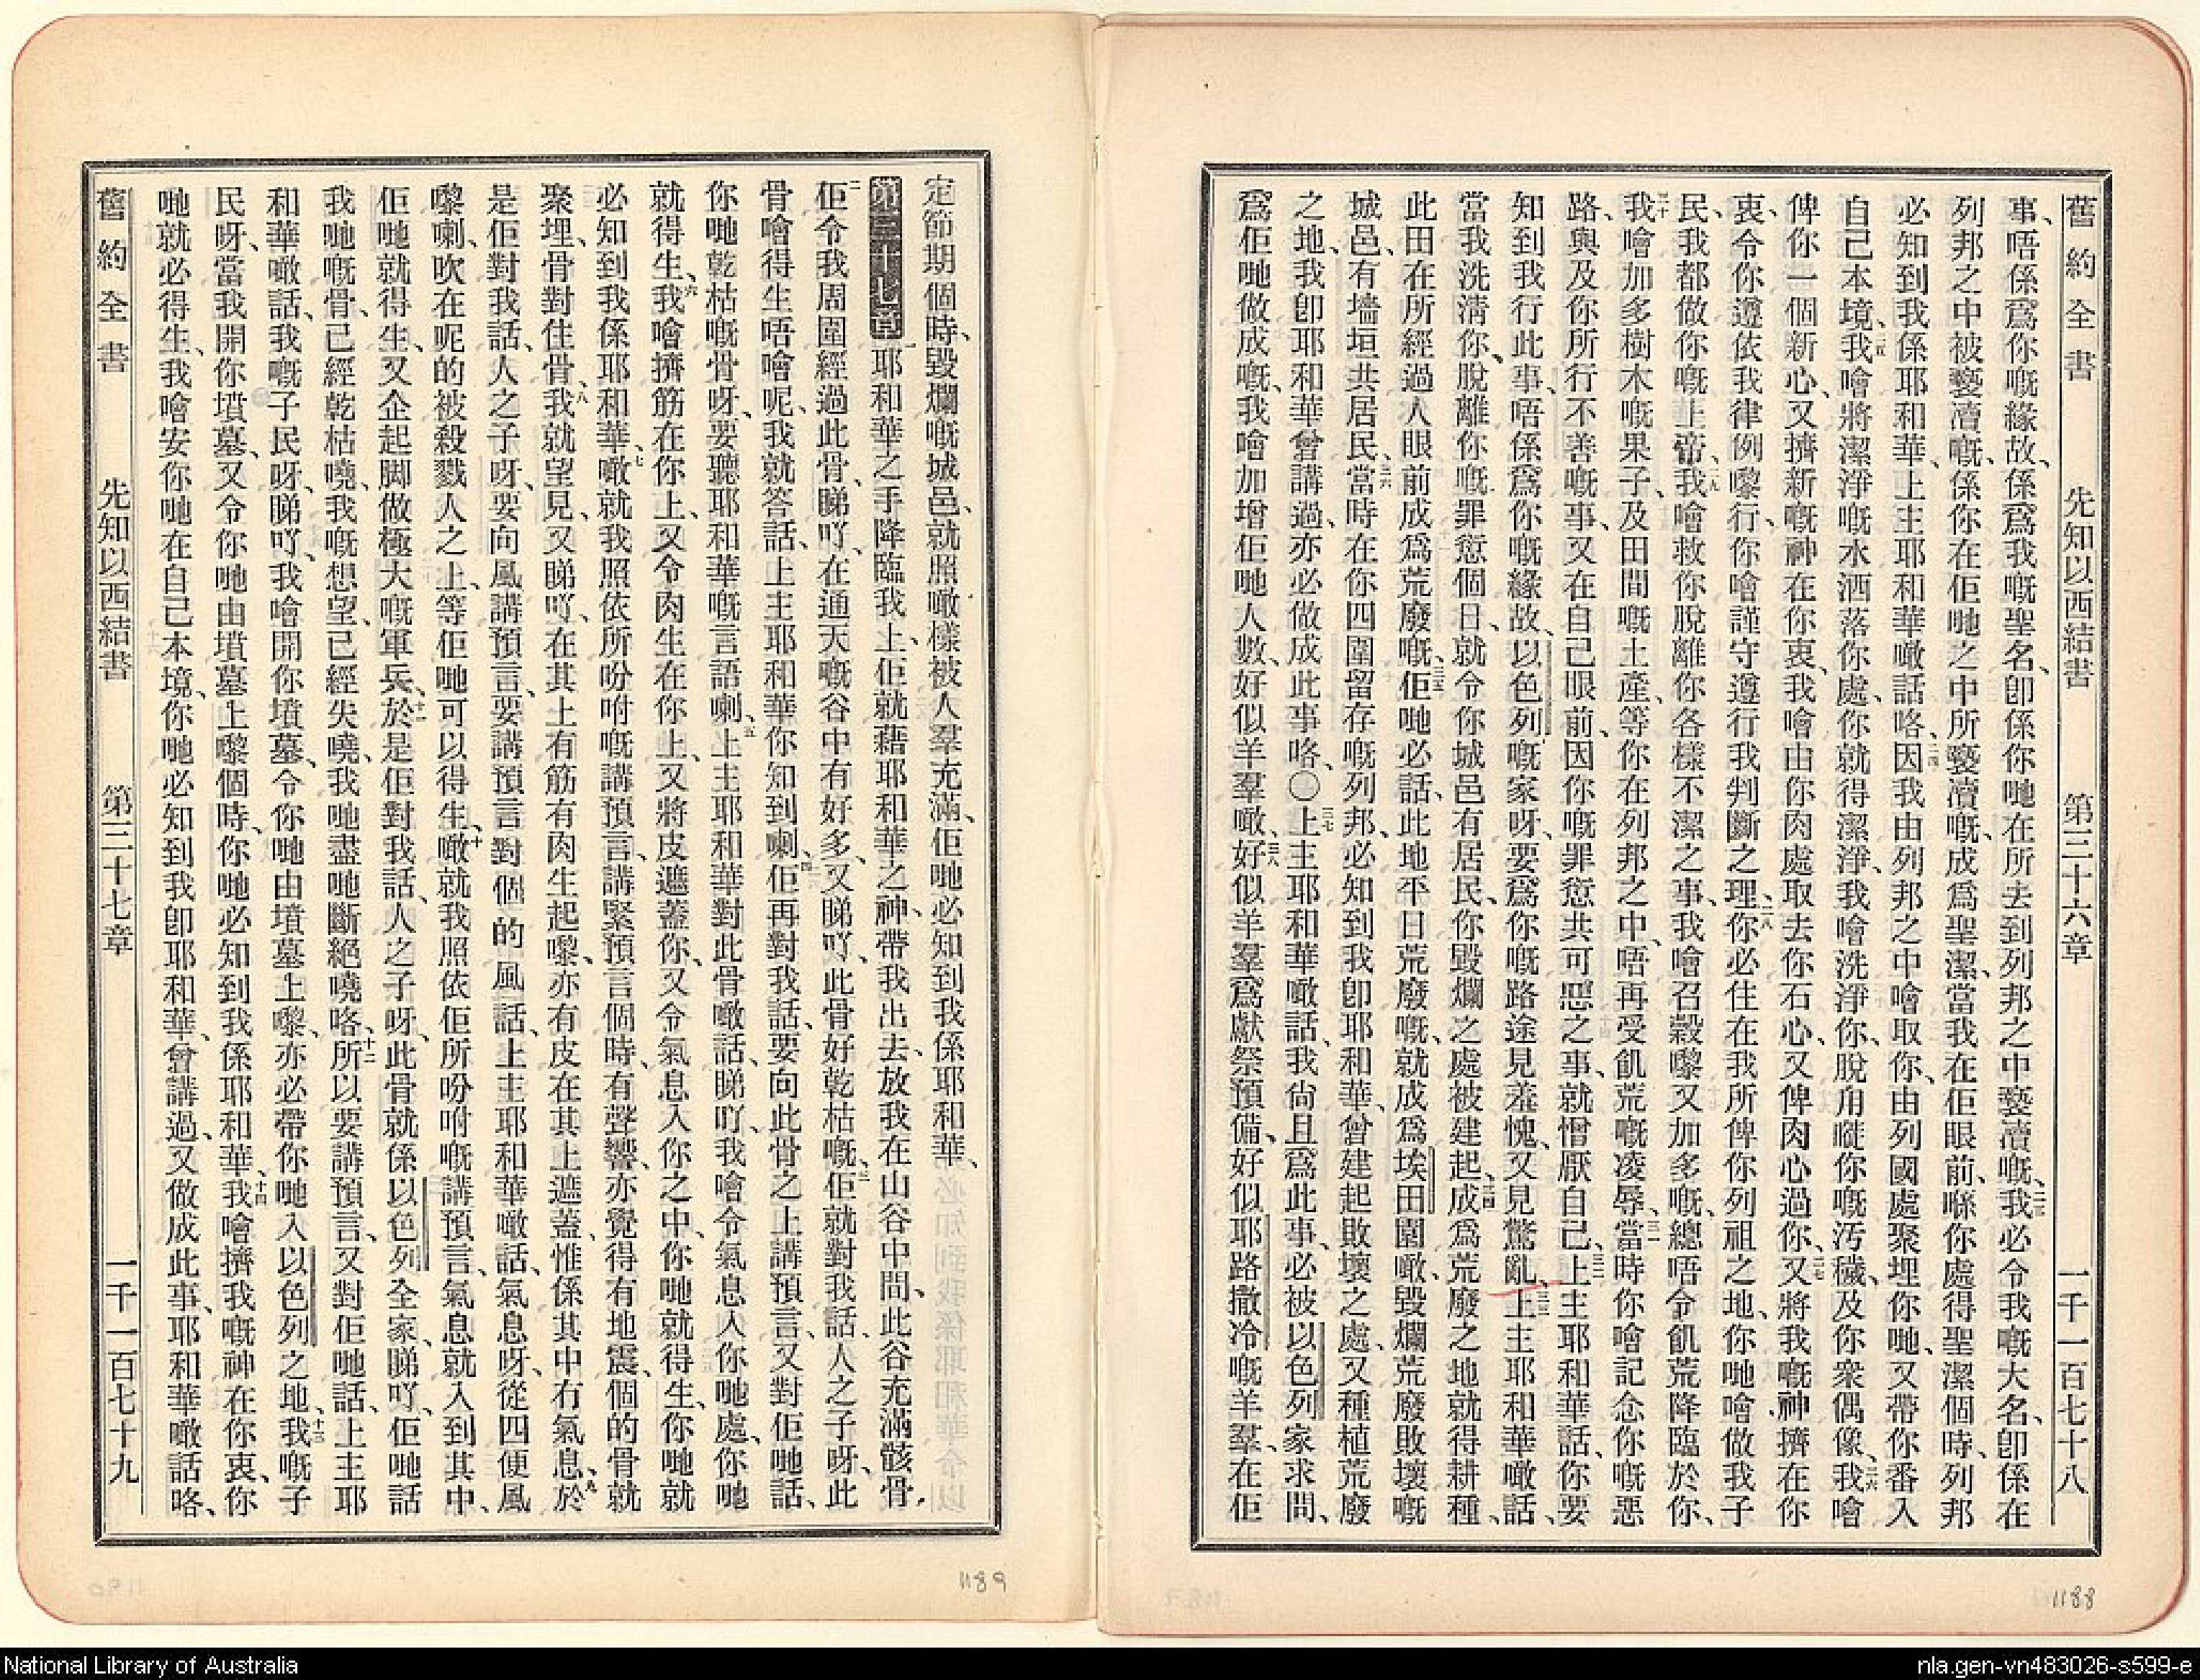 舊約全書 先知以西結書 第三十六章 一千一百七十八
事、唔係爲你嘅緣故、係爲我嘅聖名、卽係你哋在所去到列邦之中褻瀆嘅、二三我必令我嘅大名、卽係在
列邦之中被褻瀆嘅、係你在佢哋之中所褻瀆嘅、成爲聖潔、當我在佢眼前、喺你處得聖潔個時、列邦
必知到我係耶和華、上主耶和華噉話咯、二四因我由列邦之中噲取你、由列國處聚埋你哋、又帶你番入
自己本境、二五我噲將潔淨嘅水洒落你處、你就得潔淨、我噲洗淨你、脫甪嘥你嘅汚穢、及你衆偶像、二六我噲
俾你一個新心、又擠新嘅神在你衷、我噲由你肉處取去你石心、又俾肉心過你、二七又將我嘅神、擠在你
衷、令你遵依我律例嚟行、你噲謹守遵行我判斷之理、二八你必住在我所俾你列祖之地、你哋噲做我子
民、我都做你嘅上帝、二九我噲救你脫離你各樣不潔之事、我噲召穀嚟又加多嘅、總唔令飢荒降臨於你、
三十我噲加多樹木嘅果子、及田間嘅土產、等你在列邦之中、唔再受飢荒嘅凌辱、三一當時你噲記念你嘅惡
路、與及你所行不善嘅事、又在自己眼前、因你嘅罪愆共可惡之事、就憎厭自己、三二上主耶和華話、你要
知到我行此事、唔係爲你嘅緣故、以色列嘅家呀、要爲你嘅路途見羞愧、又見驚亂、三三上主耶和華噉話、
當我洗淸你、脫離你嘅罪愆個日、就令你城邑有居民、你毀爛之處被建起、三四成爲荒廢之地就得耕種、
此田在所經過人眼前成爲荒廢嘅、三五佢哋必話、此地平日荒廢嘅、就成爲埃田園噉、毀爛荒廢敗壞嘅
城邑、有墻垣共居民、三六當時在你四圍留存嘅列邦、必知到我卽耶和華、曾建起敗壞之處、又種植荒廢
之地、我卽耶和華曾講過、亦必做成此事咯、〇三七上主耶和華噉話、我尙且爲此事、必被以色列家求問、
爲佢哋做成嘅、我噲加增佢哋人數、好似羊羣噉、三八好似羊羣爲獻祭預備、好似耶路撒冷嘅羊羣、在佢
1188
定節期個時、毀爛嘅城邑、就照噉樣被人羣充滿、佢哋必知到我係耶和華、
第三十七章 一耶和華之手降臨我上、佢就藉耶和華之神、帶我出去、放我在山谷中間、此谷充滿骸骨、
二佢令我周圍經過此骨、睇吖、在通天嘅谷中有好多、又睇吖、此骨好乾枯嘅、三佢就對我話、人之子呀、此
骨噲得生唔噲呢、我就答話、上主耶和華你知到喇、四佢再對我話、要向此骨之上講預言、又對佢哋話、
你哋乾枯嘅骨呀、要聽耶和華嘅言語喇、五上主耶和華對此骨噉話、睇吖、我噲令氣息入你哋處、你哋
就得生、六我噲擠筋在你上、又令肉生在你上、又將皮遮蓋你、又令氣息入你之中、你哋就得生、你哋就
必知到我係耶和華、七噉就我照依所吩咐嘅講預言、講緊預言個時、有聲響、亦覺得有地震、個的骨就
聚埋、骨對住骨、八我就望見、又睇吖、在其上有筋有肉生起嚟、亦有皮在其上遮蓋、惟係其中冇氣息、九於
是佢對我話、人之子呀、要向風講預言、要講預言對個的風話、上主耶和華噉話、氣息呀、從四便風
嚟喇、吹在呢的被殺戮人之上、等佢哋可以得生、十噉就我照依佢所吩咐嘅講預言、氣息就入到其中、
佢哋就得生、又企起脚做極大嘅軍兵、十一於是佢對我話、人之子呀、此骨就係以色列全家、睇吖、佢哋話
我哋嘅骨、已經乾枯嘵、我嘅想望、已經失嘵、我哋盡哋斷絕嘵咯、十二所以要講預言、又對佢哋話、上主耶
和華噉話、我嘅子民呀、睇吖、我噲開你墳墓、令你哋由墳墓上嚟、亦必帶你哋入以色列之地、十三我嘅子
民呀、當我開你墳墓、又令你哋由墳墓上嚟個時、你哋必知到我係耶和華、十四我噲擠我嘅神在你衷、你
哋就必得生、我噲安你哋在自己本境、你哋必知到我卽耶和華、曾講過、又做成此事、耶和華噉話咯、
舊約全書 先知以西結書 第三十七章 一千一百七十九
1189
National Library of Australia
nla.gen-vn483026-s599-e